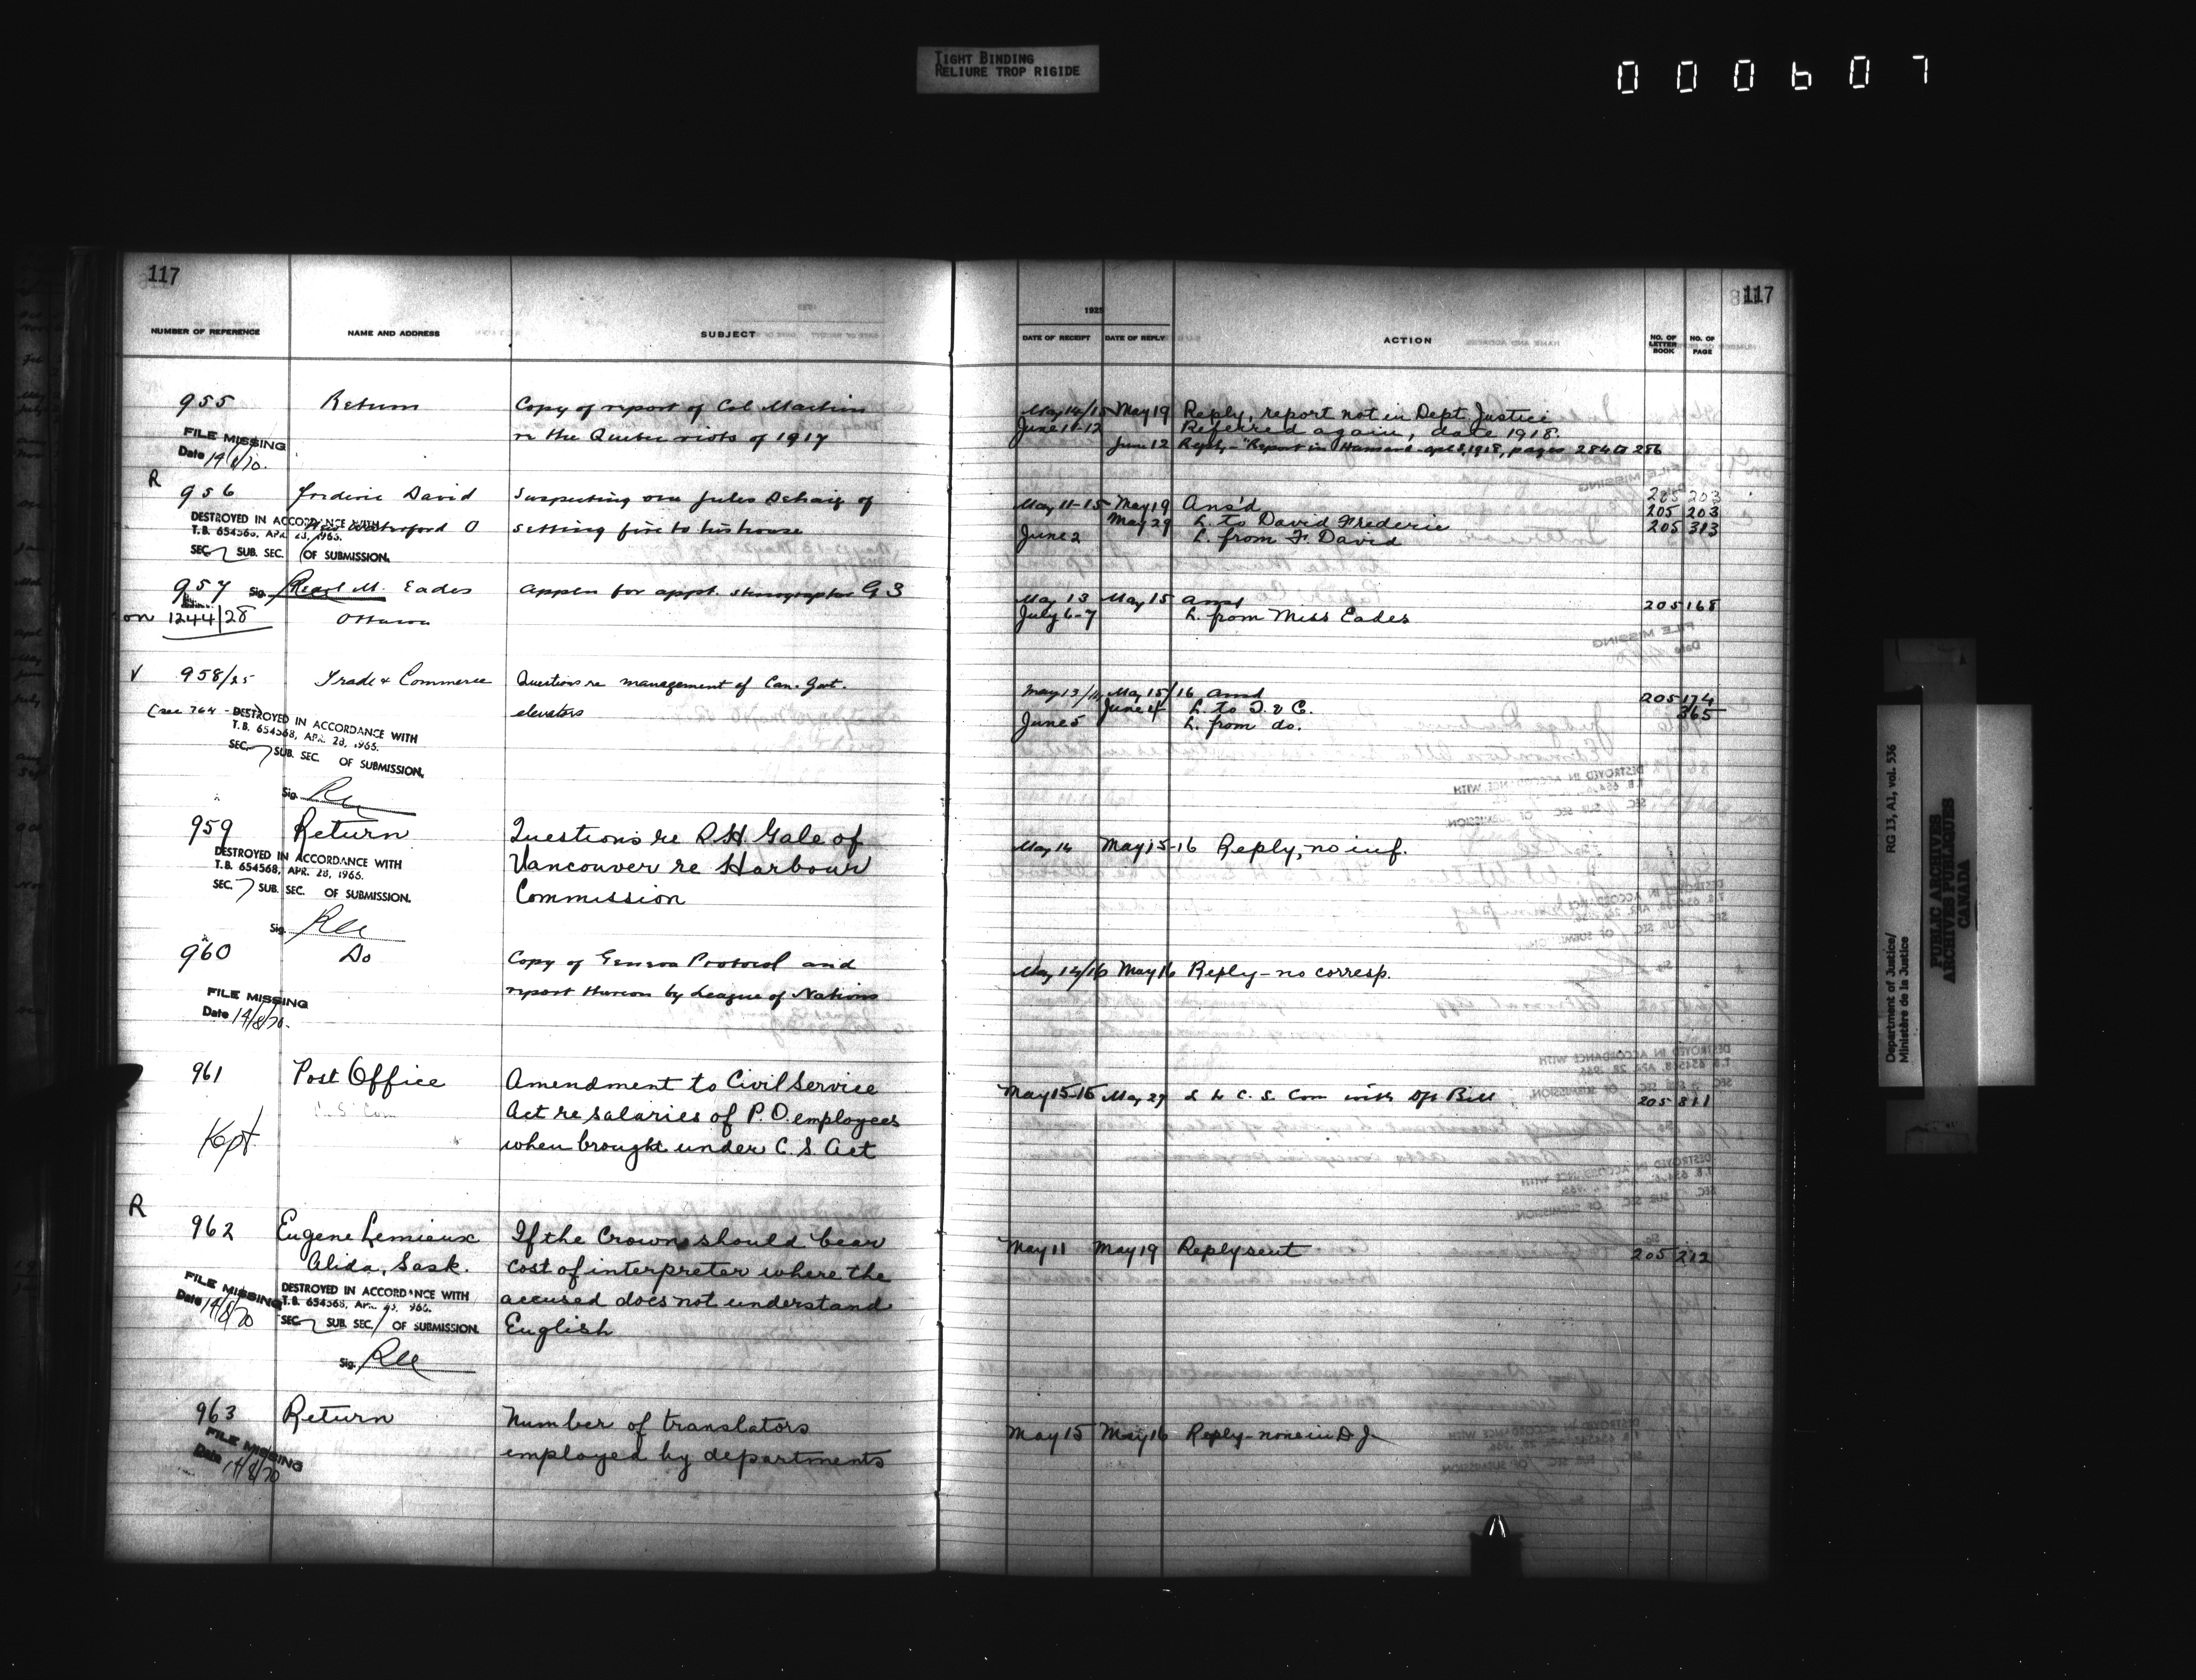 TIGHT BINDING
RELIURE TROP RIGIDE
000607
117
117
1925
NUMBER OF REFERENCE NAME AND ADDRESS SUBJECT DATE OF RECEIPT DATE OF REPLY ACTION NO. OF LETTER BOOK NO. OF PAGE
955 Return Copy of report of Col. Machin May 14/15 May 19 Reply, report not in Dept. Justice
re the Quebec riots of 1917 June 11-12 Referred again, date 1918.
June 12 Reply - "Report in Hansard - apl 5, 1918, pages 284 to 286
FILE MISSING
Date 19/8/70.
R
956 Frederic David Suspecting one Jules of May 11-15 May 19 Ans'd 205 203
O setting fire to his house May 29 L. to David Frederic 205 313
June 2 L. from F. David
DESTROYED IN ACCORDANCE WITH
T.B. 654568, APR. 28, 1966.
SEC. 7 SUB. SEC. OF SUBMISSION.
957 Sig. Pearl M. Eades Appln for appt. stenographer G 3 May 13 May 15 Ansd 205 168
on 1244/28 Ottawa July 6-7 L. from Miss Eades
V 958/25 Trade & Commerce Questions re management of Can. Govt. May 13/14 May 15/16 Ansd 205 174
(see 764 - elevators June 4 L. to T. & C. 365
June 5 L. from do.
DESTROYED IN ACCORDANCE WITH
T.B. 654568, APR. 28, 1966.
SEC. 7 SUB. SEC. OF SUBMISSION.
Sig.
959 Return Questions re R.H. Gale of May 14 May 15-16 Reply, no inf.
Vancouver re Harbour
Commission
DESTROYED IN ACCORDANCE WITH
T.B. 654568, APR. 28, 1966.
SEC. 7 SUB. SEC. OF SUBMISSION.
Sig.
960 Do Copy of Geneva Protocol and May 14/16 May 16 Reply - no corresp.
report thereon by League of Nations
FILE MISSING
Date 14/8/70.
961 Post Office Amendment to Civil Service May 15-15 May 29 L to C. S. Com with Dft Bill 205 811
C. S. Com Act re salaries of P.O. employees
Kept when brought under C. S. Act
R
962 Eugene Lemieux If the Crown should bear May 11 May 19 Reply sent 205 212
Alida, Sask. cost of interpreter where the
accused does not understand
English
FILE MISSING
Date 14/8/70
DESTROYED IN ACCORDANCE WITH
T.B. 654568, APR. 28, 1966.
SEC. 7 SUB. SEC. / OF SUBMISSION.
Sig.
963 Return Number of translators May 15 May 16 Reply - none in D J
employed by departments
FILE MISSING
Date 14/8/70
Department of Justice/
Ministère de la Justice
RG 13, A1, vol. 536
PUBLIC ARCHIVES
ARCHIVES PUBLIQUES
CANADA